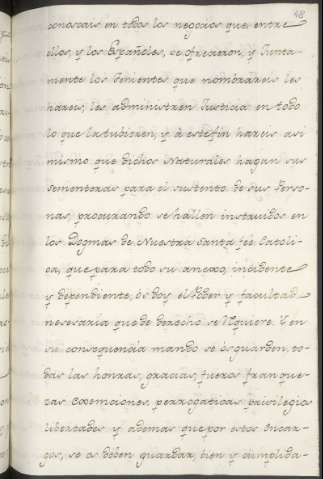 48
conoscais en todos los negocios que entre
ellos, y los Españoles, se ofrecieren, y Junta-
mente los Tenientes que nombrareis les
hareis, les administren Justicia en todo
lo que la tubieren, y á este fin hareis asi
mismo que dichos Naturales hagan sus
sementeras para el sustento de sus Perso-
nas, procurando se hallen instruidos en
los Dogmas de Nuestra Santa feé Catoli-
ca, que para todo su anexo, incidente
y dependiente, ós doy el Poder y facultad
nesesaria que de derecho se rrequiere. Y en
su consequencia mando se ós guarden, to-
das las honras, gracias, fueros franque-
zas Exempciones, perrogativas privilegios
libertades y ademas que por estos Encar-
gos, se os deben guardar, bien y cumplida-